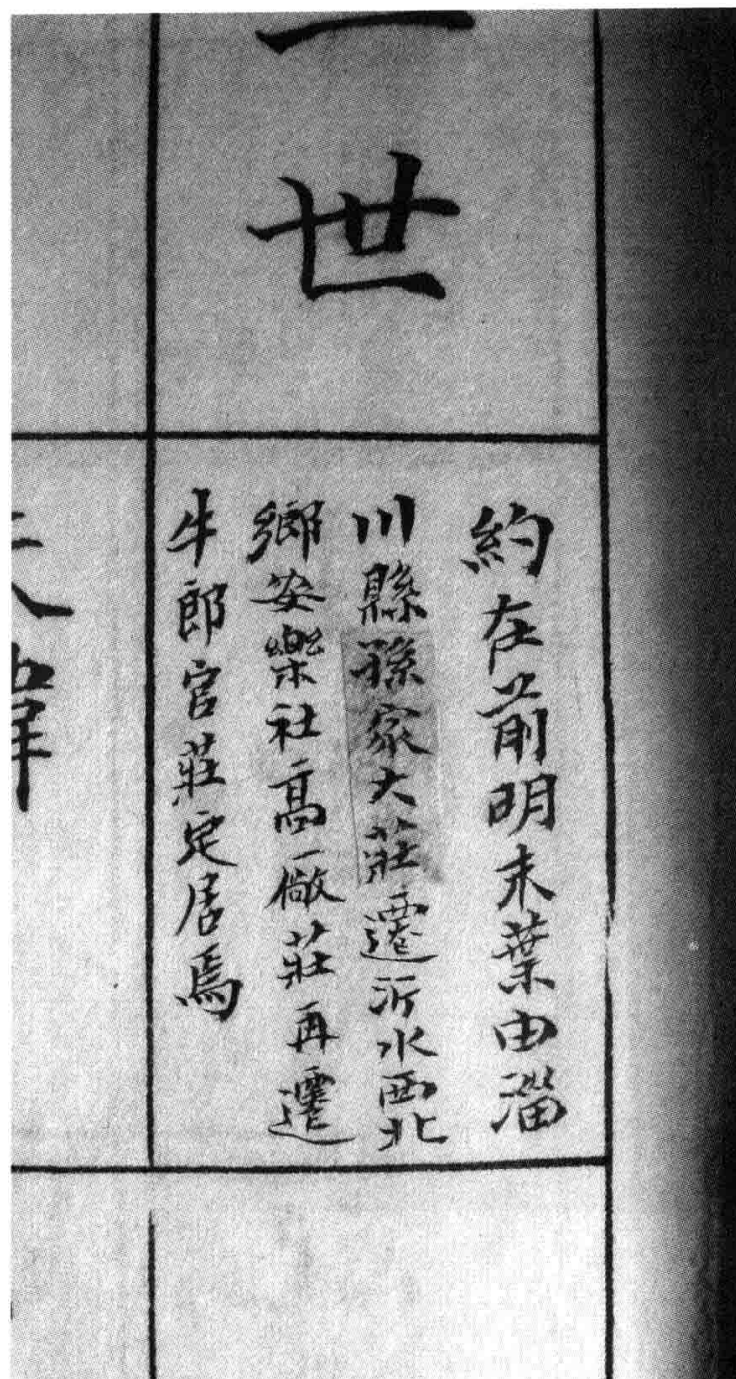 一世
約在前明末葉由淄
川縣孫家大莊遷沂水西北
鄉安樂社高廠莊再遷
牛郎官莊定居焉